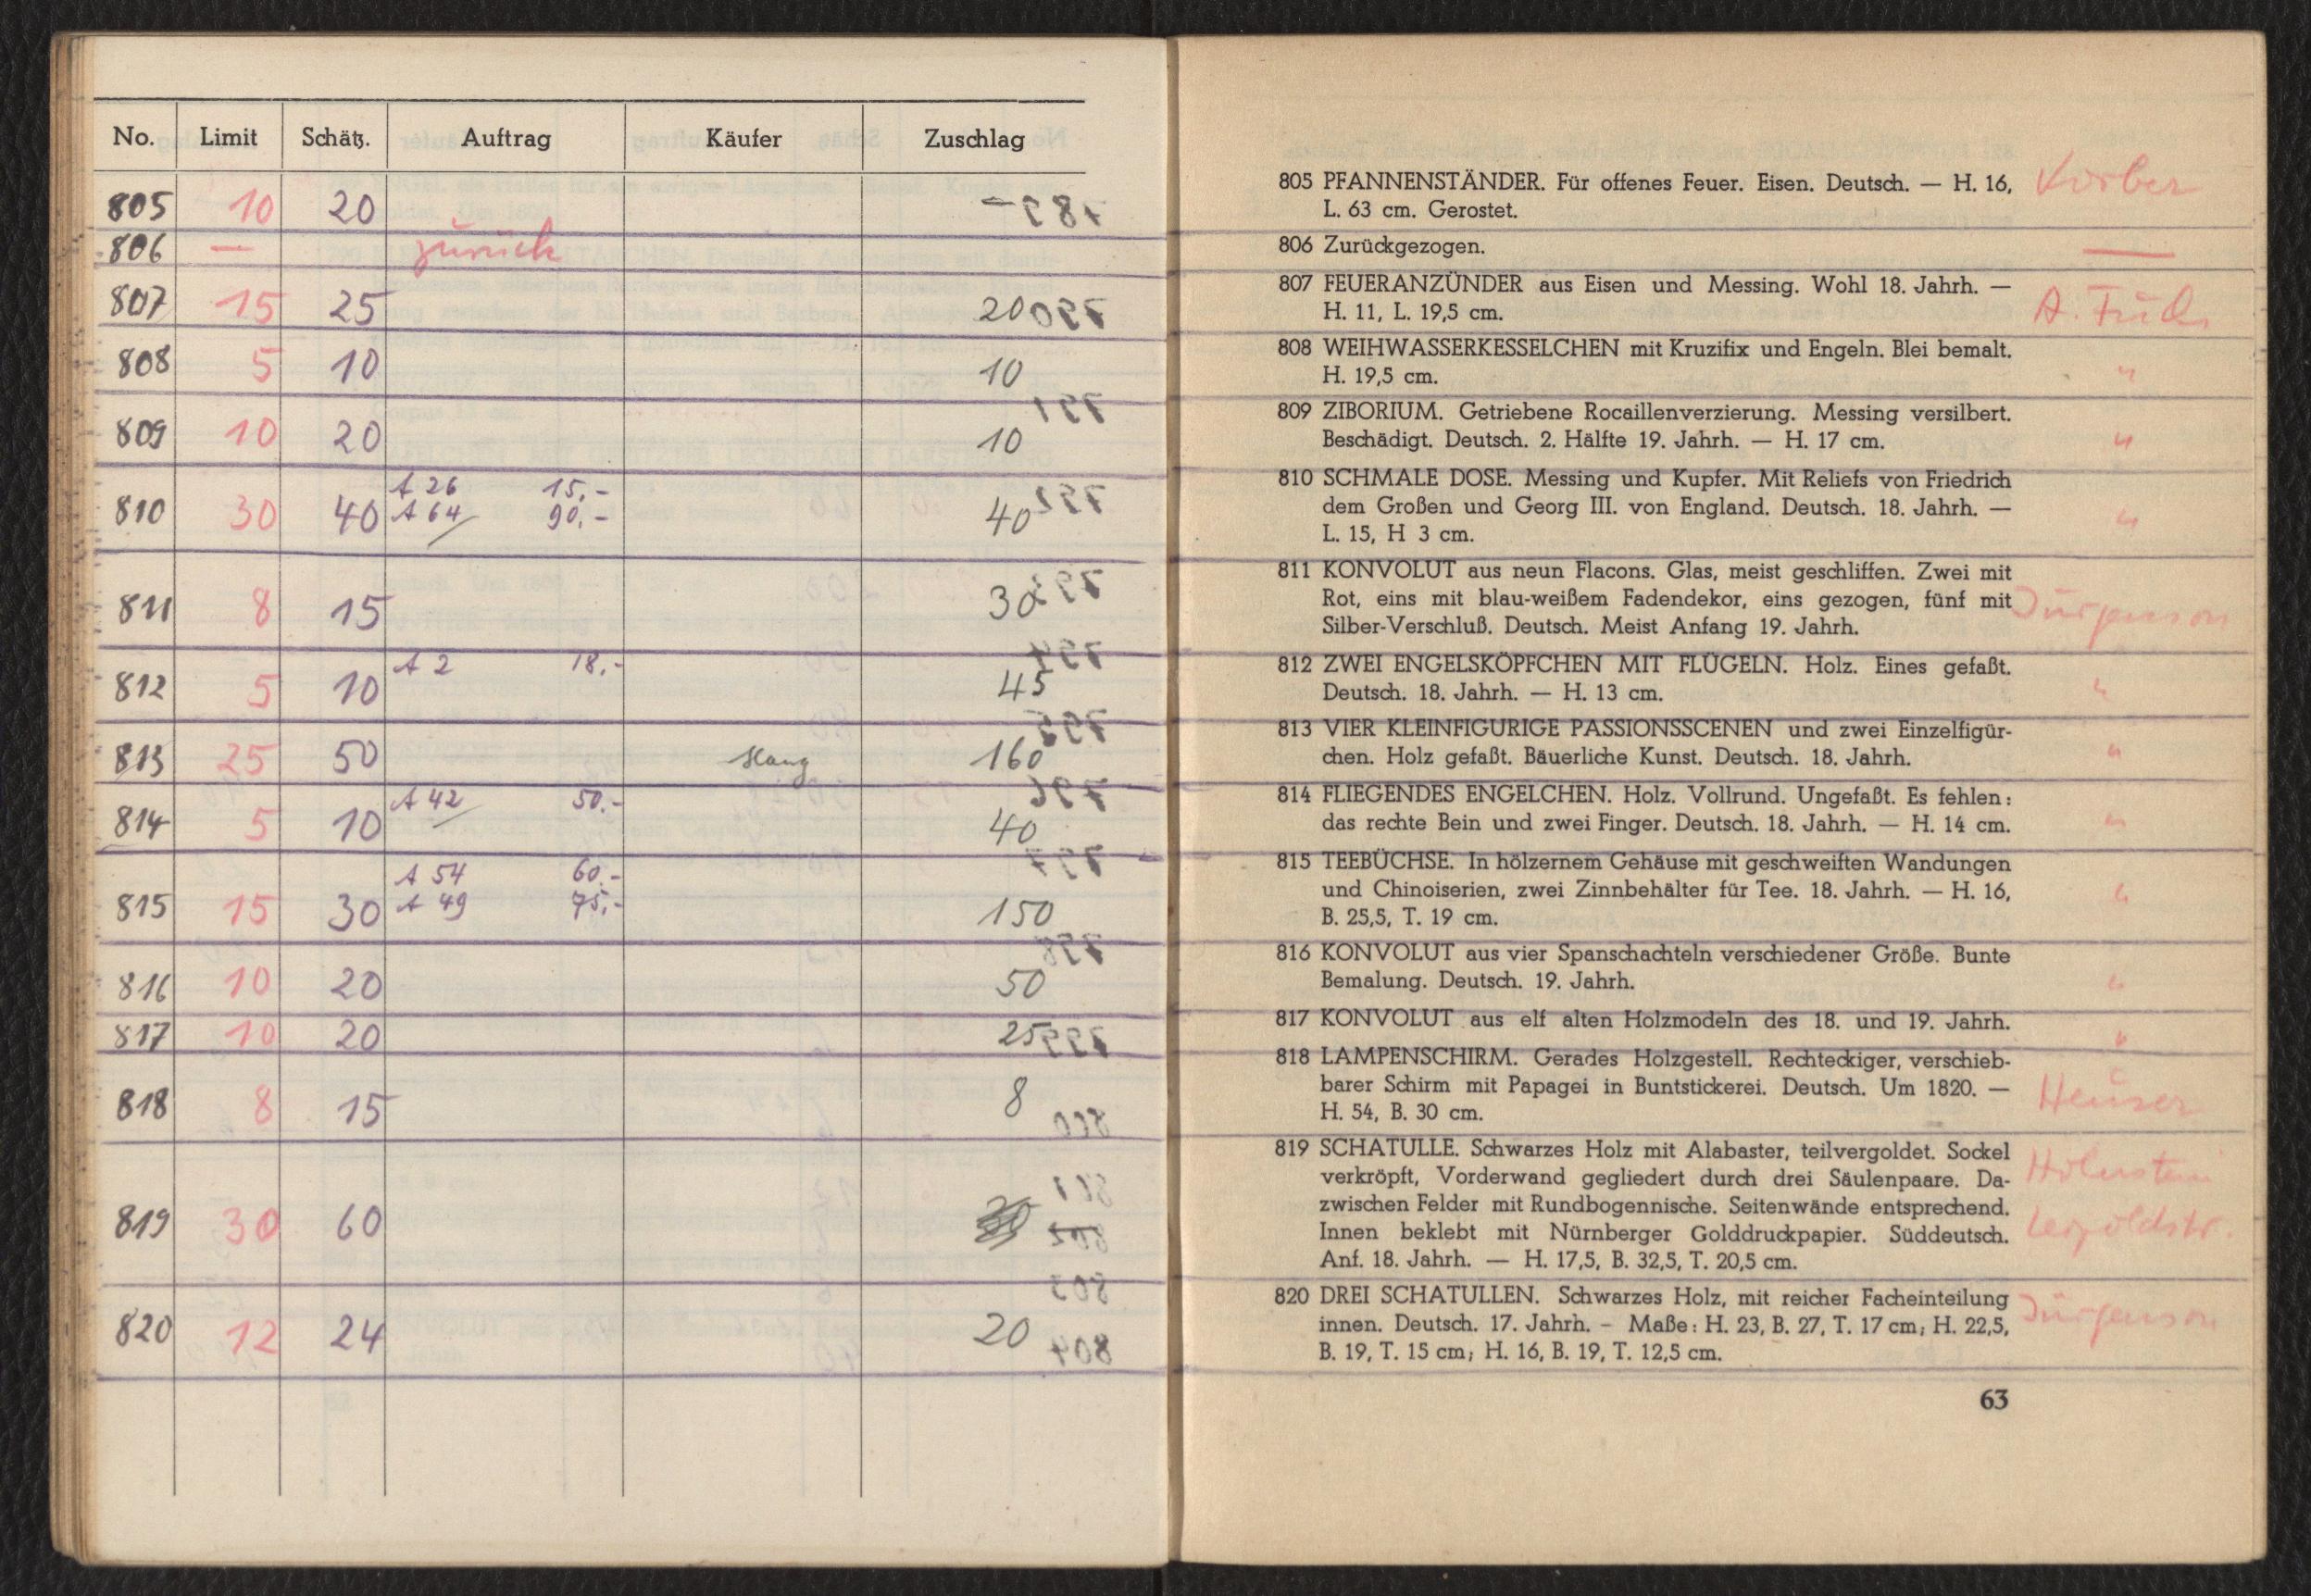 No. Limit Schätz. Auftrag Käufer Zuschlag
805 10 20
806 — zurück
807 15 25 20
808 5 10 10
809 10 20 10
810 30 40 A 26 15,- 40
A 64 90,-
811 8 15 30
812 5 10 A 2 18,- 45
813 25 50 160
814 5 10 A 42 50.- 40
815 15 30 A 54 60.- 150
A 49 75,-
816 10 20 50
817 10 20 25
818 8 15 8
819 30 60
820 12 24 20
805 PFANNENSTÄNDER. Für offenes Feuer. Eisen. Deutsch. — H. 16, Körber
L. 63 cm. Gerostet.
806 Zurückgezogen. —
807 FEUERANZÜNDER aus Eisen und Messing. Wohl 18. Jahrh. —
H. 11, L. 19,5 cm. A.
808 WEIHWASSERKESSELCHEN mit Kruzifix und Engeln. Blei bemalt.
H. 19,5 cm. "
809 ZIBORIUM. Getriebene Rocaillenverzierung. Messing versilbert.
Beschädigt. Deutsch. 2. Hälfte 19. Jahrh. — H. 17 cm. "
810 SCHMALE DOSE. Messing und Kupfer. Mit Reliefs von Friedrich
dem Großen und Georg III. von England. Deutsch. 18. Jahrh. — "
L. 15, H 3 cm.
811 KONVOLUT aus neun Flacons. Glas, meist geschliffen. Zwei mit
Rot, eins mit blau-weißem Fadendekor, eins gezogen, fünf mit Jürgenson
Silber-Verschluß. Deutsch. Meist Anfang 19. Jahrh.
812 ZWEI ENGELSKÖPFCHEN MIT FLÜGELN. Holz. Eines gefaßt.
Deutsch. 18. Jahrh. — H. 13 cm. "
813 VIER KLEINFIGURIGE PASSIONSSCENEN und zwei Einzelfigür-
chen. Holz gefaßt. Bäuerliche Kunst. Deutsch. 18. Jahrh. "
814 FLIEGENDES ENGELCHEN. Holz. Vollrund. Ungefaßt. Es fehlen:
das rechte Bein und zwei Finger. Deutsch. 18. Jahrh. — H. 14 cm. "
815 TEEBÜCHSE. In hölzernem Gehäuse mit geschweiften Wandungen
und Chinoiserien, zwei Zinnbehälter für Tee. 18. Jahrh. — H. 16, "
B. 25,5, T. 19 cm.
816 KONVOLUT aus vier Spanschachteln verschiedener Größe. Bunte
Bemalung. Deutsch. 19. Jahrh. "
817 KONVOLUT aus elf alten Holzmodeln des 18. und 19. Jahrh. "
818 LAMPENSCHIRM. Gerades Holzgestell. Rechteckiger, verschieb-
barer Schirm mit Papagei in Buntstickerei. Deutsch. Um 1820. — Heuser
H. 54, B. 30 cm.
819 SCHATULLE. Schwarzes Holz mit Alabaster, teilvergoldet. Sockel
verkröpft, Vorderwand gegliedert durch drei Säulenpaare. Da- Holnstein
zwischen Felder mit Rundbogennische. Seitenwände entsprechend.
Innen beklebt mit Nürnberger Golddruckpapier. Süddeutsch. Leopoldstr.
Anf. 18. Jahrh. — H. 17,5, B. 32,5, T. 20,5 cm.
820 DREI SCHATULLEN. Schwarzes Holz, mit reicher Facheinteilung
innen. Deutsch. 17. Jahrh. – Maße: H. 23, B. 27, T. 17 cm; H. 22,5, Jürgenson
B. 19, T. 15 cm; H. 16, B. 19, T. 12,5 cm.
63